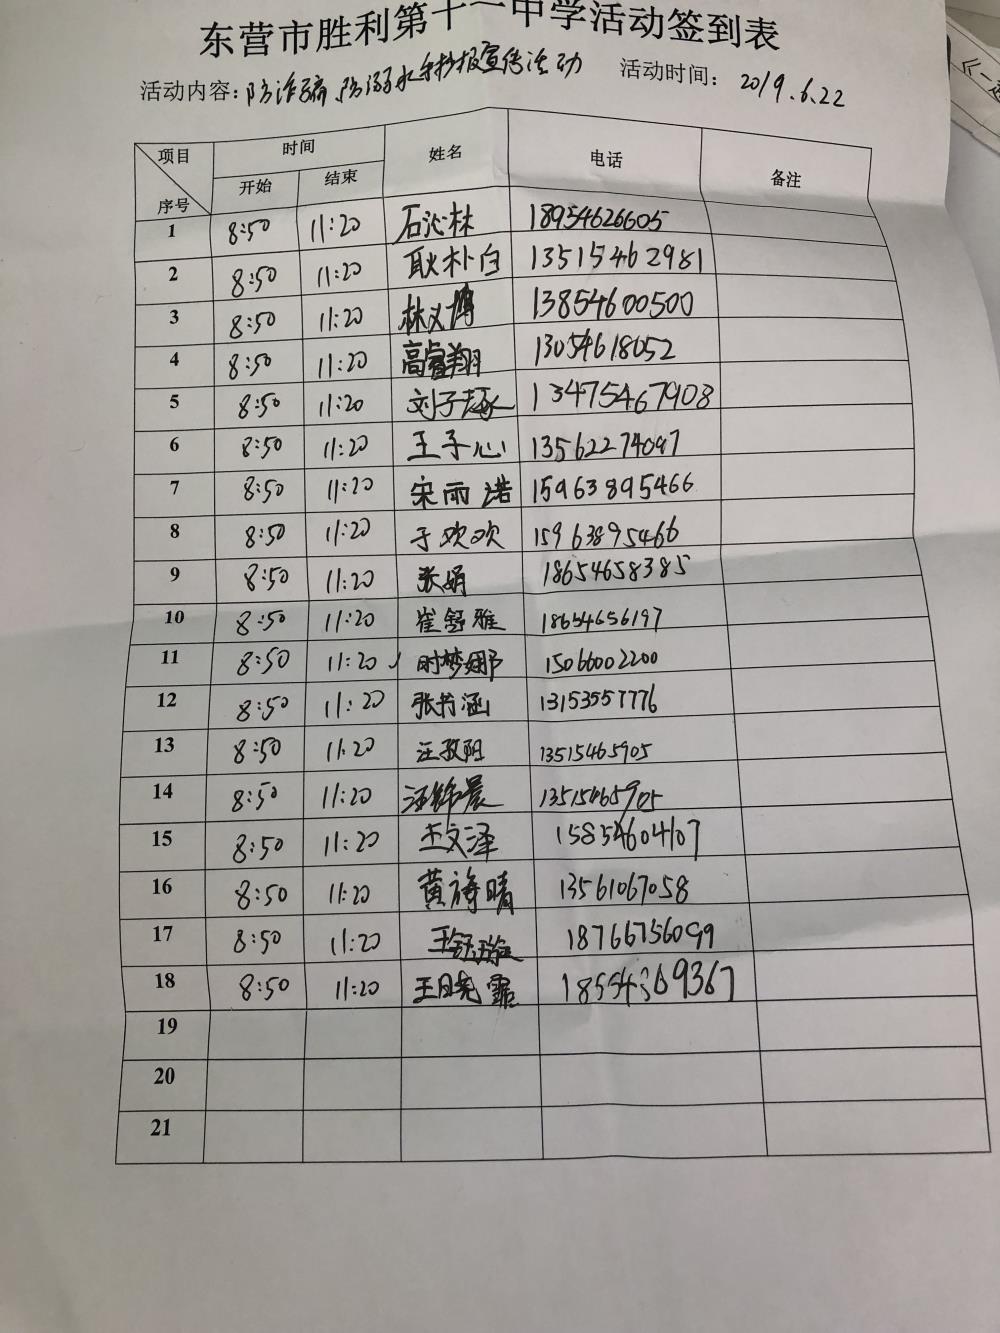 东营市胜利第十一中学活动签到表
活动内容：防诈骗、防溺水手抄报宣传活动 活动时间：2019.6.22
项目 时间 姓名 电话 备注
序号 开始 结束
1 8:50 11:20 石沁林 18954626605
2 8:50 11:20 耿朴白 13515462981
3 8:50 11:20 林义博 13854600500
4 8:50 11:20 高睿翔 13054618052
5 8:50 11:20 刘子琢 13475467908
6 8:50 11:20 王子心 13562274097
7 8:50 11:20 宋雨浩 15963895466
8 8:50 11:20 于欢欢 15963895466
9 8:50 11:20 张娟 18654658385
10 8:50 11:20 崔舒雅 18654656197
11 8:50 11:20 时梦娜 15066002200
12 8:50 11:20 张书涵 13153557776
13 8:50 11:20 汪孜阳 13515465905
14 8:50 11:20 汪锦晨 13515465905
15 8:50 11:20 王文泽 15854604107
16 8:50 11:20 黄诗晴 13561067058
17 8:50 11:20 王钰璇 18766756099
18 8:50 11:20 王晓霏 18554369367
19
20
21